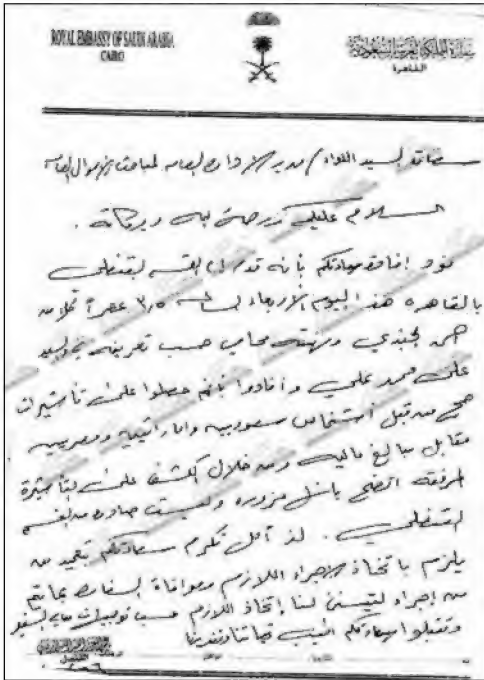 ROYAL EMBASSY OF SAUDI ARABIA
CAIRO
سفارة المملكة العربية السعودية
القاهرة
سعادة السيد اللواء / مدير الإدارة العامة لمباحث الأموال العامة
السلام عليكم ورحمة الله وبركاته .
نود إفادة سعادتكم بأنه قد للقسم القنصلي
بالقاهرة هذا اليوم الأربعاء الساعة ٣,٥ عصراً كلا من
ومهنته محامي حسب تعريفه والسيد
علي محمد علي وأفادوا بأنهم حصلوا على تأشيرات
حج من قبل أشخاص سعوديين وإماراتيين ومصريين
مقابل مبالغ مالية ومن خلال الكشف على التأشيرة
المرفقة اتضح بأنها مزورة وليست صادرة من القسم
القنصلي . لذا آمل تكرم سعادتكم تعميد من
يلزم باتخاذ الإجراء اللازم وموافاة السفارة بما تم
من إجراء ليتسنى لنا إتخاذ اللازم حسب توجيهات معالي السفير
وتقبلوا سعادتكم أطيب تحياتنا وتقديرنا